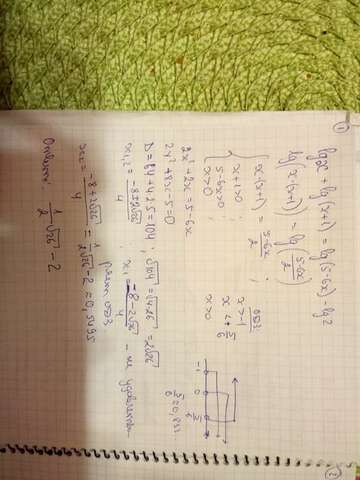 ①
lg x + lg (x+1) = lg (5-6x) - lg 2
lg (x·(x+1)) = lg (5-6x / 2) ;
x·(x+1) = 5-6x / 2
x+1>0 ;
5-6x>0 ;
x>0
ОДЗ
x>-1
x<+5/6
x>0
-1 0 5/6
5/6=0,833
2x²+2x=5-6x
2x²+8x-5=0
D=64+4·2·5=104 ; √104=√4·26=2√26
x₁,₂= -8±2√26 / 4 ; x₁= -8-2√26 / 4 - не удовлетвор.
ОДЗ
x₂= -8+2√26 / 4 = 1/2√26-2≈0,5495
Ответ: 1/2·√26-2
②